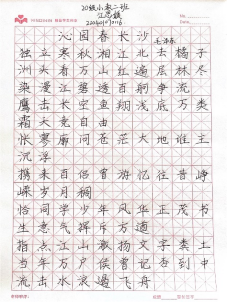 20级小教二班
江思敏
沁园春 长沙
毛泽东
独立寒秋湘江北去橘子
洲头看万山红遍层林尽
染漫江碧透百舸争流
鹰击长空鱼翔浅底万类
霜天竞自由
怅寥廓问苍茫大地谁主
沉浮
携来百侣曾游忆往昔峥
嵘岁月稠
恰同学少年风华正茂书
生意气挥斥方遒
指点江山激扬文字粪土
当年万户侯曾记否到中
流击水浪遏飞舟